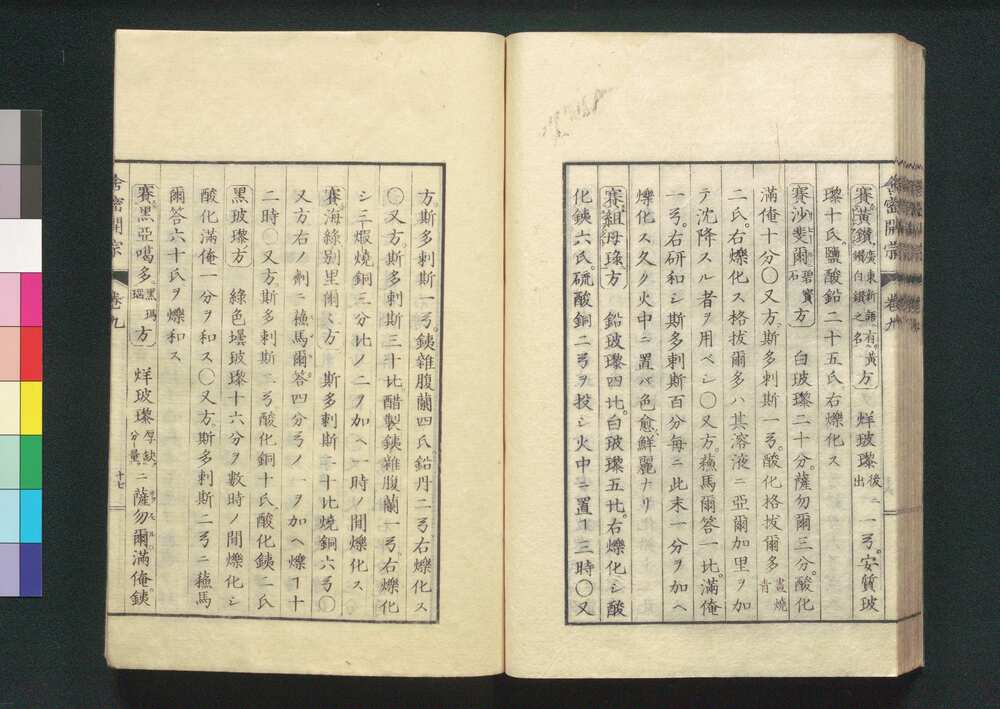 舎密開宗 巻九
賽黃鑽 廣東新語有黃鑽白鑽之名 方 烊玻瓈 後ニ出 一弓安質玻
瓈十氏鹽酸鉛二十五氏右爍化ス
賽沙斐爾 碧寶石 方 白玻瓈二十分薩勿爾三分酸化
滿俺十分〇又方斯多剌斯一弓酸化格拔爾多 畫燒青
二氏右爍化ス格拔爾多ハ其溶液ニ亞爾加里ヲ加
テ沈降スル者ヲ用ベシ〇又方蘓馬爾答一比滿俺
一弓右研和シ斯多剌斯百分每ニ此末一分ヲ加ヘ
爍化ス久ク火中ニ置バ色愈鮮麗ナリ
賽祖母綠方 鉛玻瓈四比白玻瓈五比右爍化シ酸
化銕六氏硫酸銅二弓ヲ投シ火中ニ置ヿ三時〇又
方斯多剌斯一弓銕雜腹蘭四氏鉛丹二弓右爍化ス
〇又方斯多剌斯三十比醋製銕雜腹蘭一弓右爍化
シ三煆燒銅三分比ノ二ヲ加ヘ一時ノ間爍化ス
賽海綠別里爾ス方 斯多剌斯二十比燒銅六弓〇
又方右ノ劑ニ蘓馬爾答四分弓ノ一ヲ加ヘ爍ヿ十
二時〇又方斯多剌斯二弓酸化銅十氏酸化銕二氏
黑玻瓈方 綠色壜玻瓈十六分ヲ數時ノ間爍化シ
酸化滿俺一分ヲ和ス〇又方斯多剌斯二弓ニ蘓馬
爾答六十氏ヲ爍和ス
賽黑亞噶多 黑瑪瑙 方 烊玻瓈 厚缺分量 ニ薩勿爾滿俺銕
舎密開宗 巻九 十七